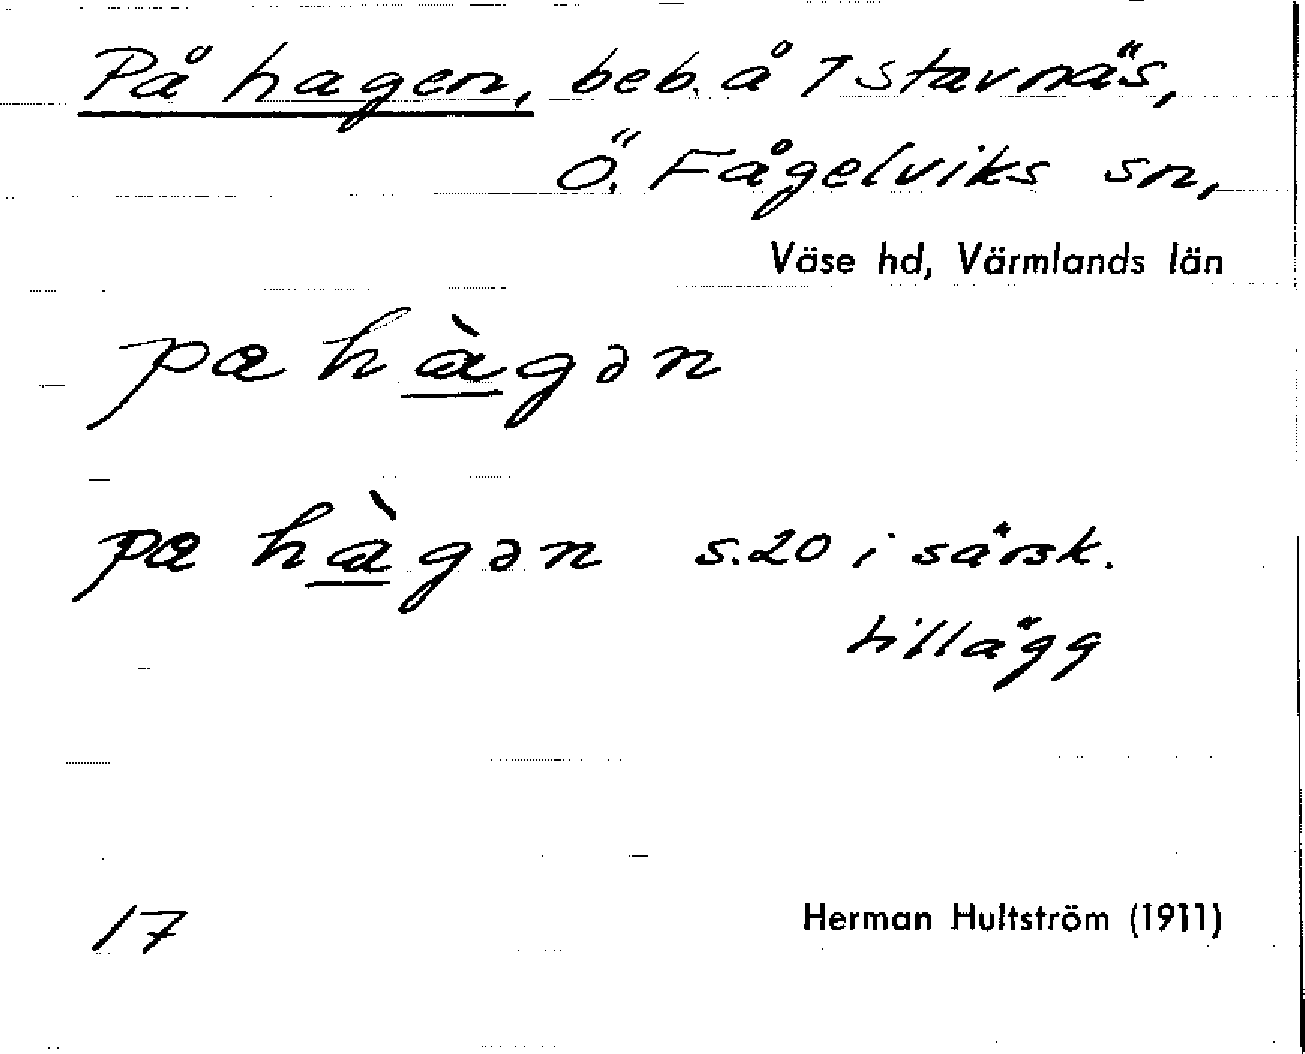 På hagen, beb. å 7 Stavnäs,
Ö. Fågelviks sn,
Väse hd, Värmlands län
pa hàgən
pa hàgən s. 20 i särsk.
tillägg
17
Herman Hultström (1911)